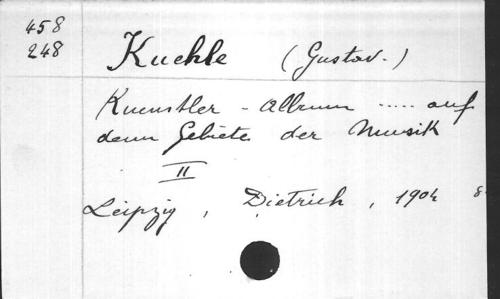 458
248
Kuehle (Gustav.)
Kuenstler - Album ..... auf
dem Gebiete der Musik
II
Leipzig, Dietrich, 1904 8-